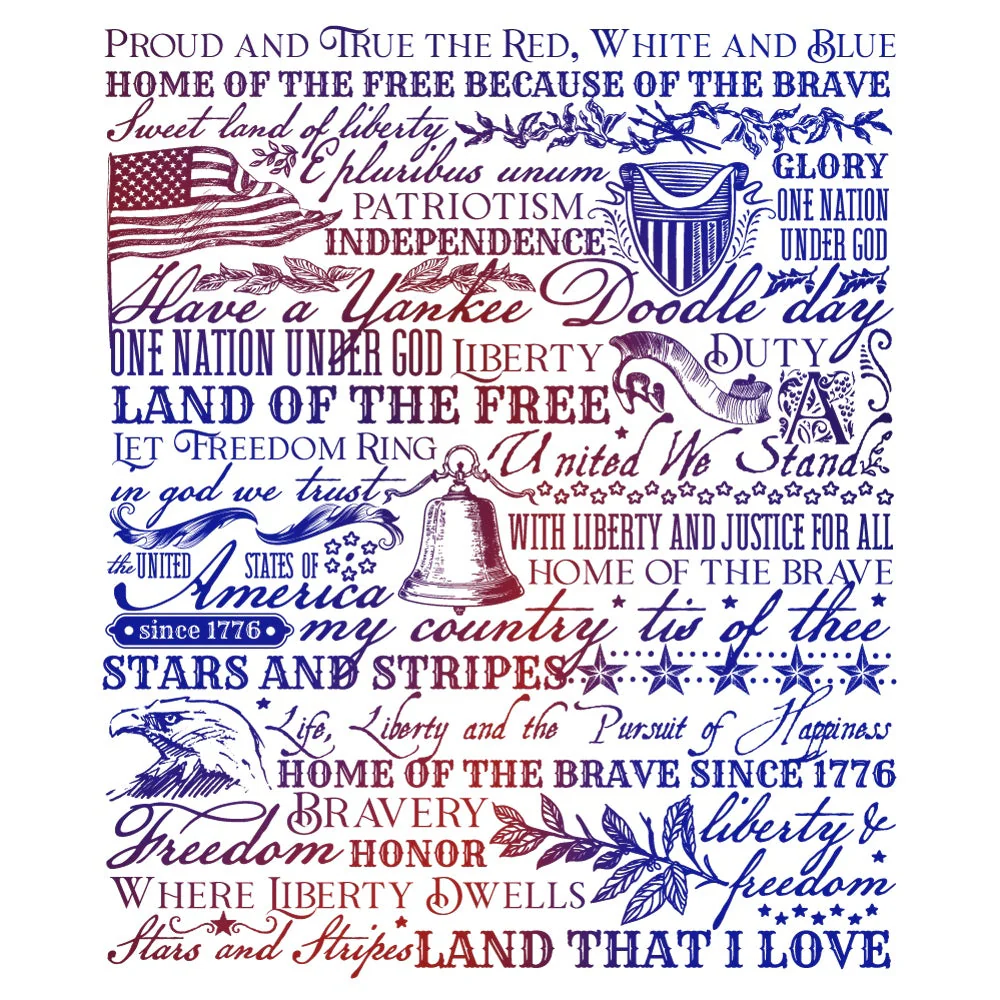 PROUD AND TRUE THE RED, WHITE AND BLUE
HOME OF THE FREE BECAUSE OF THE BRAVE
Sweet land of liberty
E pluribus unum
GLORY
PATRIOTISM
ONE NATION
INDEPENDENCE
UNDER GOD
Have a Yankee Doodle day
ONE NATION UNDER GOD
LIBERTY
DUTY
LAND OF THE FREE
A
LET FREEDOM RING
United We Stand
in god we trust
WITH LIBERTY AND JUSTICE FOR ALL
the UNITED STATES OF
America
HOME OF THE BRAVE
since 1776
my country tis of thee
STARS AND STRIPES
Life, Liberty and the Pursuit of Happiness
HOME OF THE BRAVE SINCE 1776
BRAVERY
Freedom
HONOR
liberty &
freedom
WHERE LIBERTY DWELLS
Stars and Stripes
LAND THAT I LOVE